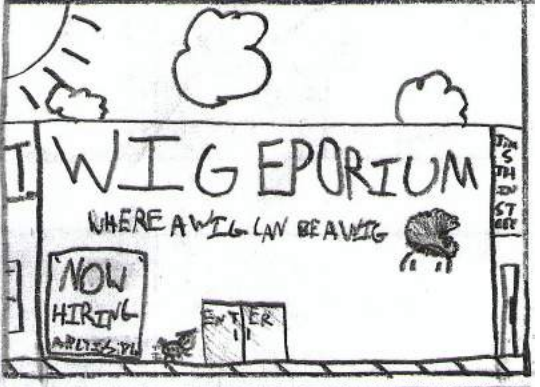 WIG EPORIUM
WHERE A WIG CAN BE A WIG
NOW
HIRING
ENTER
JIM
S
TH
IN
ST